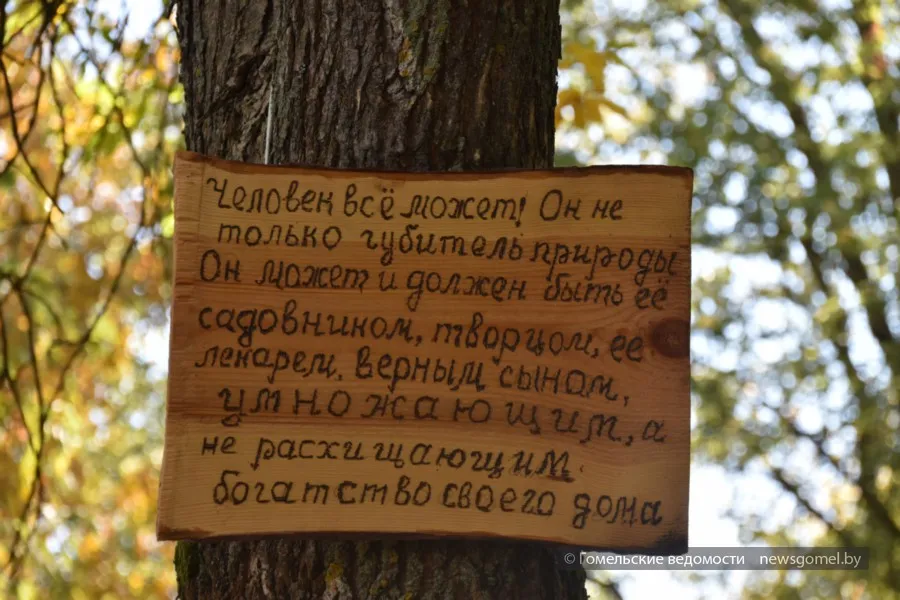 Человек всё может! Он не
только губитель природы
Он может и должен быть её
садовником, творцом, её
лекарем. верным сыном,
умножающим, а
не расхищающим
богатство своего дома
© Гомельские ведомости newsgomel.by